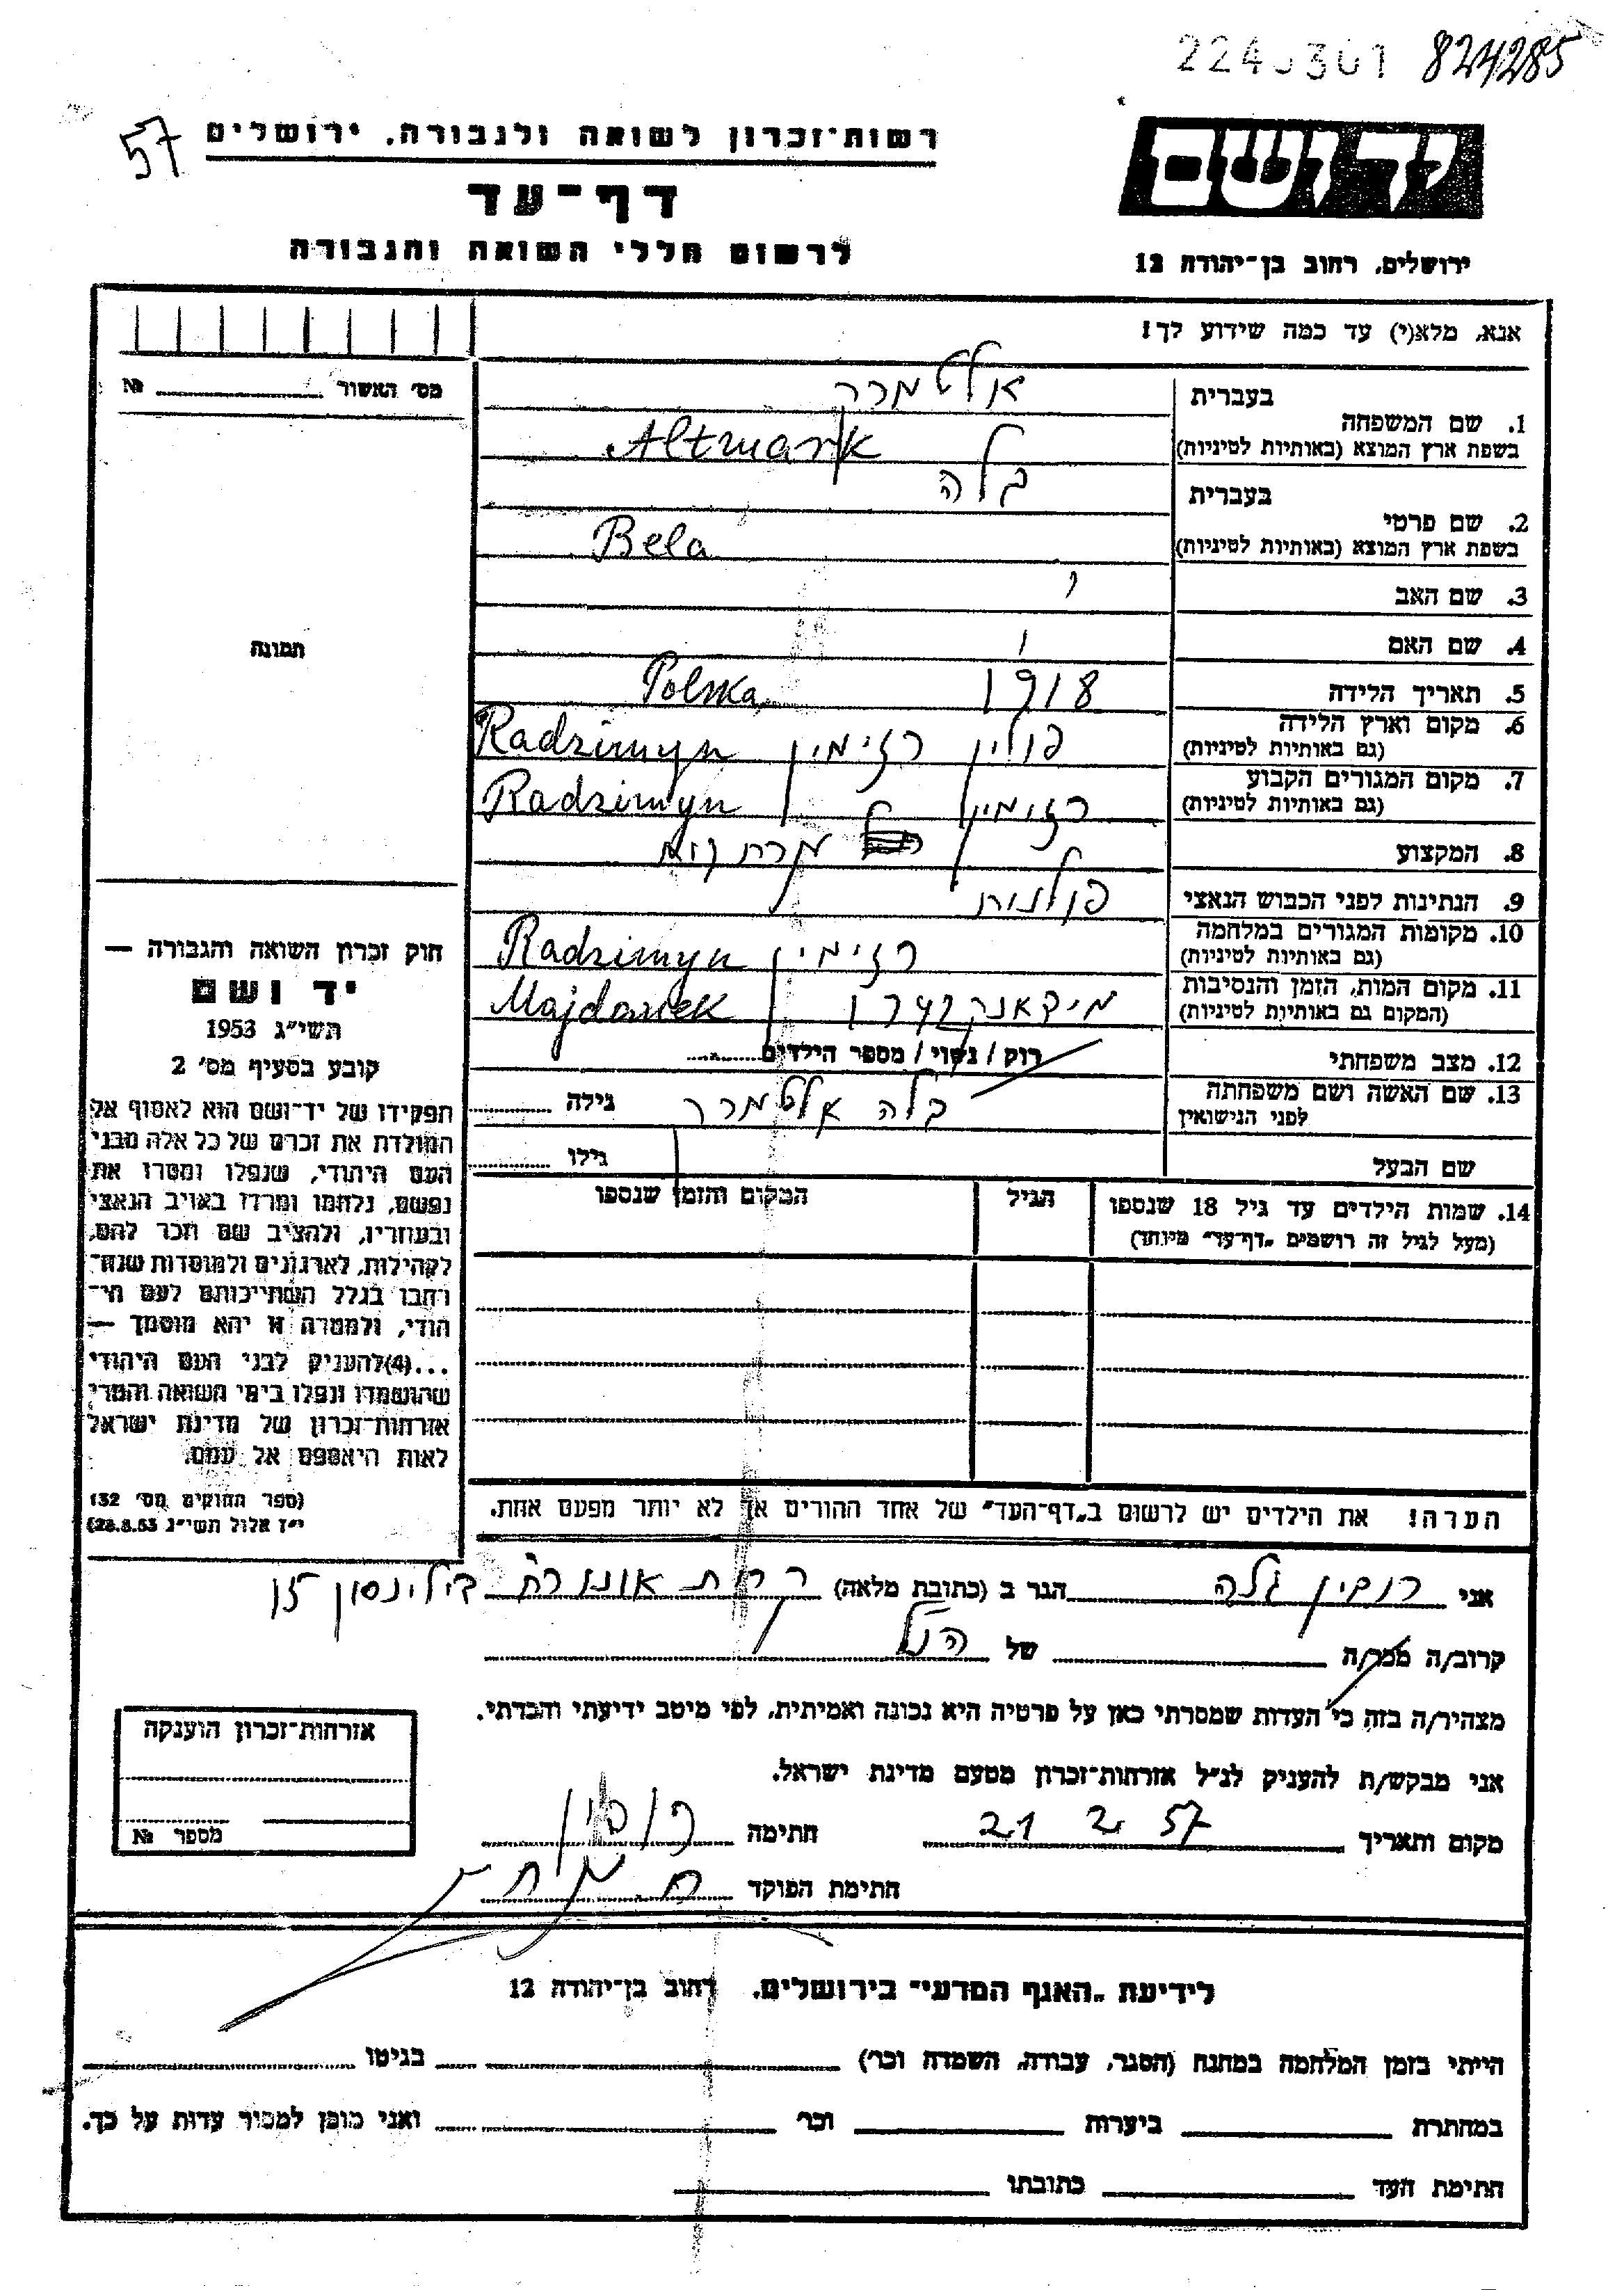 824285
57
רשות-זכרון לשואה ולגבורה, ירושלים
דף-עד
לרשום חללי השואה והגבורה
ידושם
ירושלים, רחוב בן-יהודה 12
אנא, מלא(י) עד כמה שידוע לך!
מס' האשור №
1. שם המשפחה
בעברית אלטמרק
בשפת ארץ המוצא (באותיות לטיניות) Altmark
2. שם פרטי
בעברית בלה
בשפת ארץ המוצא (באותיות לטיניות) Bela
3. שם האב
4. שם האם
5. תאריך הלידה 1918
6. מקום וארץ הלידה (גם באותיות לטיניות) פולין רדזימין Polska, Radzimyn
7. מקום המגורים הקבוע (גם באותיות לטיניות) Radzimyn
8. המקצוע
9. הנתינות לפני הכבוש הנאצי פולנית
10. מקומות המגורים במלחמה (גם באותיות לטיניות) Radzimyn
11. מקום המות, הזמן והנסיבות (המקום גם באותיות לטיניות) מידאנק 1942 Majdanek
12. מצב משפחתי רוק / נשוי / מספר הילדים
13. שם האשה ושם משפחתה לפני הנישואין בלה אלטמרק גילה
שם הבעל גילו
14. שמות הילדים עד גיל 18 שנספו
(מעל לגיל זה רושמים "דף-עד" מיוחד)
הגיל
המקום והזמן שנספו
תמונה
חוק זכרון השואה והגבורה —
יד ושם
תשי"ג 1953
קובע בסעיף מס' 2
תפקידו של יד-ושם הוא לאסוף אל
המולדת את זכרם של כל אלה מבני
העם היהודי, שנפלו ומסרו את
נפשם, נלחמו ומרדו באויב הנאצי
ובעוזריו, ולהציב שם וזכר להם,
לקהילות, לארגונים ולמוסדות שנח-
רבו בגלל השתייכותם לעם הי-
הודי, ולמטרה זו יהא מוסמך —
...(4)להעניק לבני העם היהודי
שהושמדו ונפלו בימי השואה והמרי
אזרחות-זכרון של מדינת ישראל
לאות היאספם אל עמם.
(ספר החוקים מס' 132
י"ז אלול תשי"ג 28.8.53)
הערה! את הילדים יש לרשום ב"דף-העד" של אחד ההורים אך לא יותר מפעם אחת.
אני רובין גלה הגר ב (כתובת מלאה) קרית אונו בילינסון
קרוב/ה מכר/ה של הנ"ל
מצהיר/ה בזה כי העדות שמסרתי כאן על פרטיה היא נכונה ואמיתית, לפי מיטב ידיעתי והכרתי.
אני מבקש/ת להעניק לנ"ל אזרחות-זכרון מטעם מדינת ישראל.
מקום ותאריך 21 2 57 חתימה רובין
חתימת הפוקד
אזרחות-זכרון הוענקה
מספר №
לידיעת "האגף המדעי" בירושלים, רחוב בן-יהודה 12
הייתי בזמן המלחמה במחנה (הסגר, עבודה, השמדה וכו') בגיטו
במחתרת ביערות וכו' ואני מוכן למסור עדות על כך.
חתימת העד כתובתו